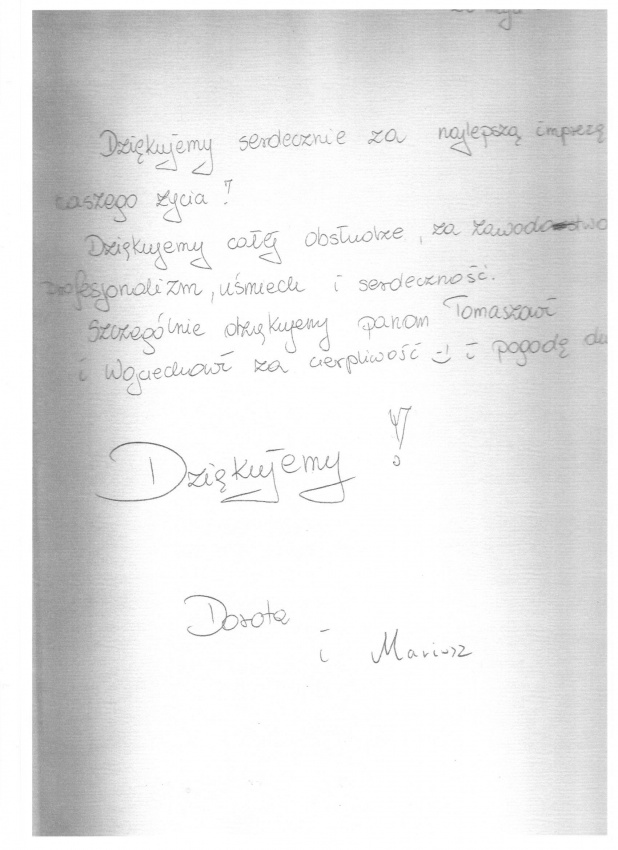 Dziękujemy serdecznie za najlepszą imprezę
naszego życia!
Dziękujemy całej obsłudze, za zawodo
profesjonalizm, uśmiech i serdeczność.
Szczególnie dziękujemy panom Tomaszowi
i Wojciechowi za cierpliwość :-) i pogodę du
Dziękujemy!
Dorota
i Mariusz